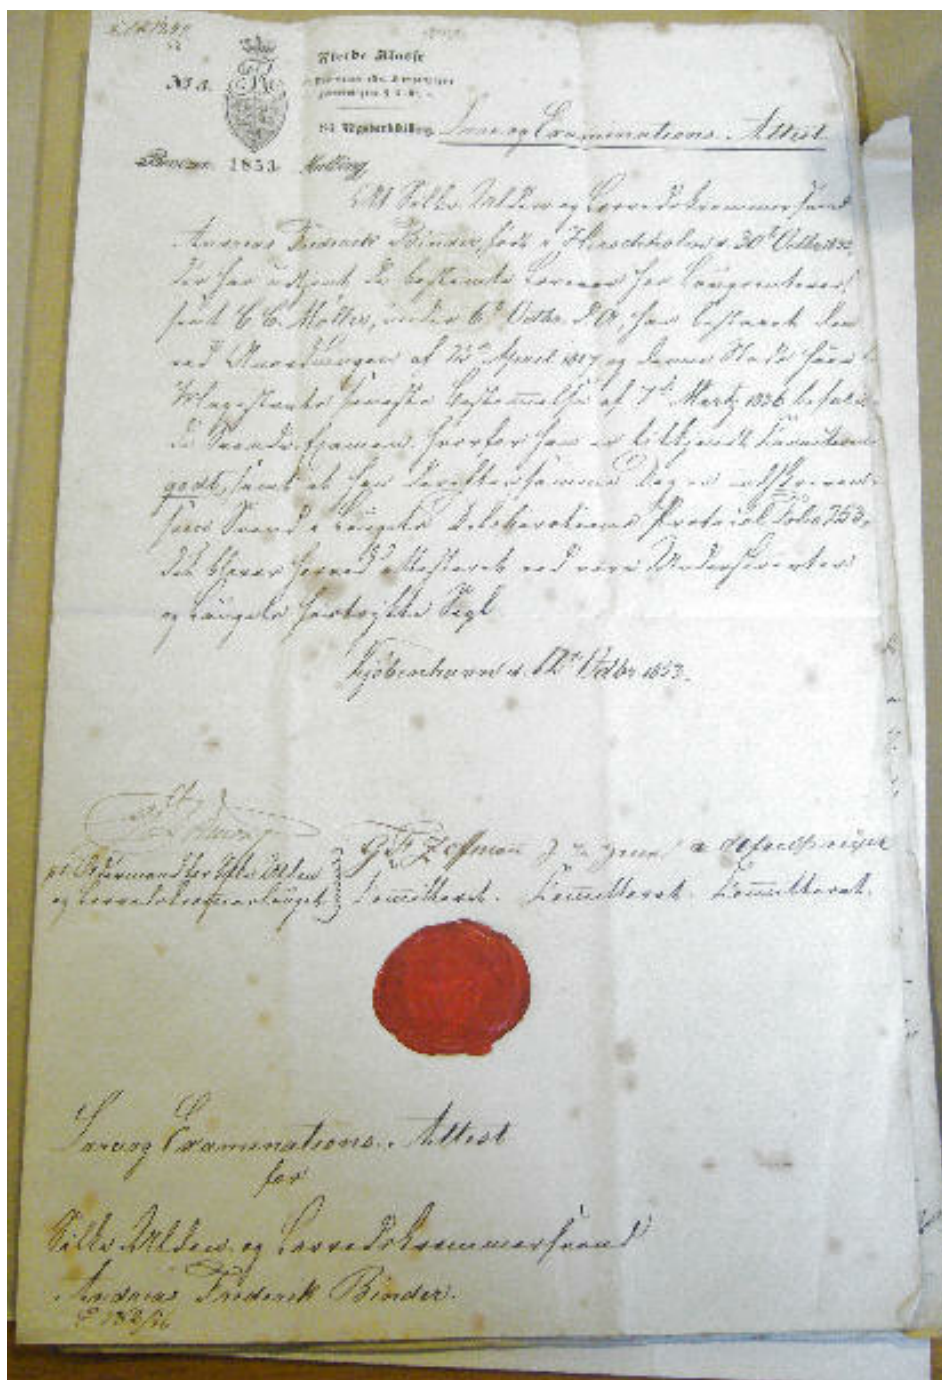 No 3.
Fierde Klasse
84 Rigsbankskilling
Lære og Examinations-Attest
1853
At Silke Ulden og Lærredskræmmersvend
Andreas Frederik Binder, født i Hirschholm d. 30t Octbr
der har udstaaet de bestemte Læreaar hos
C. C. Møller, under 6t Octbr. d. A. har bestaaet den
ved Anordningen af 22de April 1817 og denne Stads
Magistrats seneste Bestemmelse af 7de Marts 1836 befalede
Svende-Examen, hvorfor han er tilkjendt Karakteren
godt, samt at han derefter samme Dag er indskreven
som Svend i Laugets Deliberations Protocol Folio 253,
det bliver herved attesteret ved vore Underskrifter
og Laugets hostrykte Segl
Kjøbenhavn d. 12te Octbr 1853.
Oldermand for Silke Ulden
og Lærredskræmmerlauget
Committeret. Committeret. Committeret.
Lære og Examinations-Attest
for
Silke Ulden og Lærredskræmmersvend
Andreas Frederik Binder.